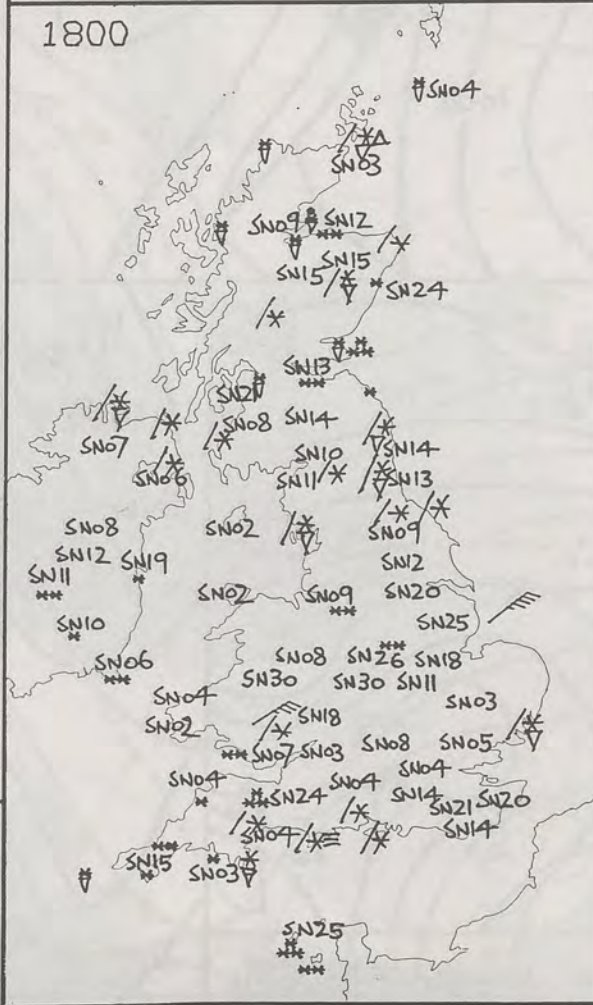 1800
SN04
SN03
SN09 SN12
SN15 SN15
SN24
SN13
SN21
SN08 SN14
SN07 SN10 SN14
SN06 SN11 SN13
SN08 SN02 SN09
SN12 SN19 SN12
SN11 SN02 SN09 SN20
SN10 SN25
SN06 SN08 SN26 SN18
SN04 SN30 SN30 SN11
SN02 SN18 SN03
SN07 SN03 SN08 SN05
SN04 SN04 SN04
SN24 SN14 SN21 SN20
SN04 SN14
SN15 SN03
SN25